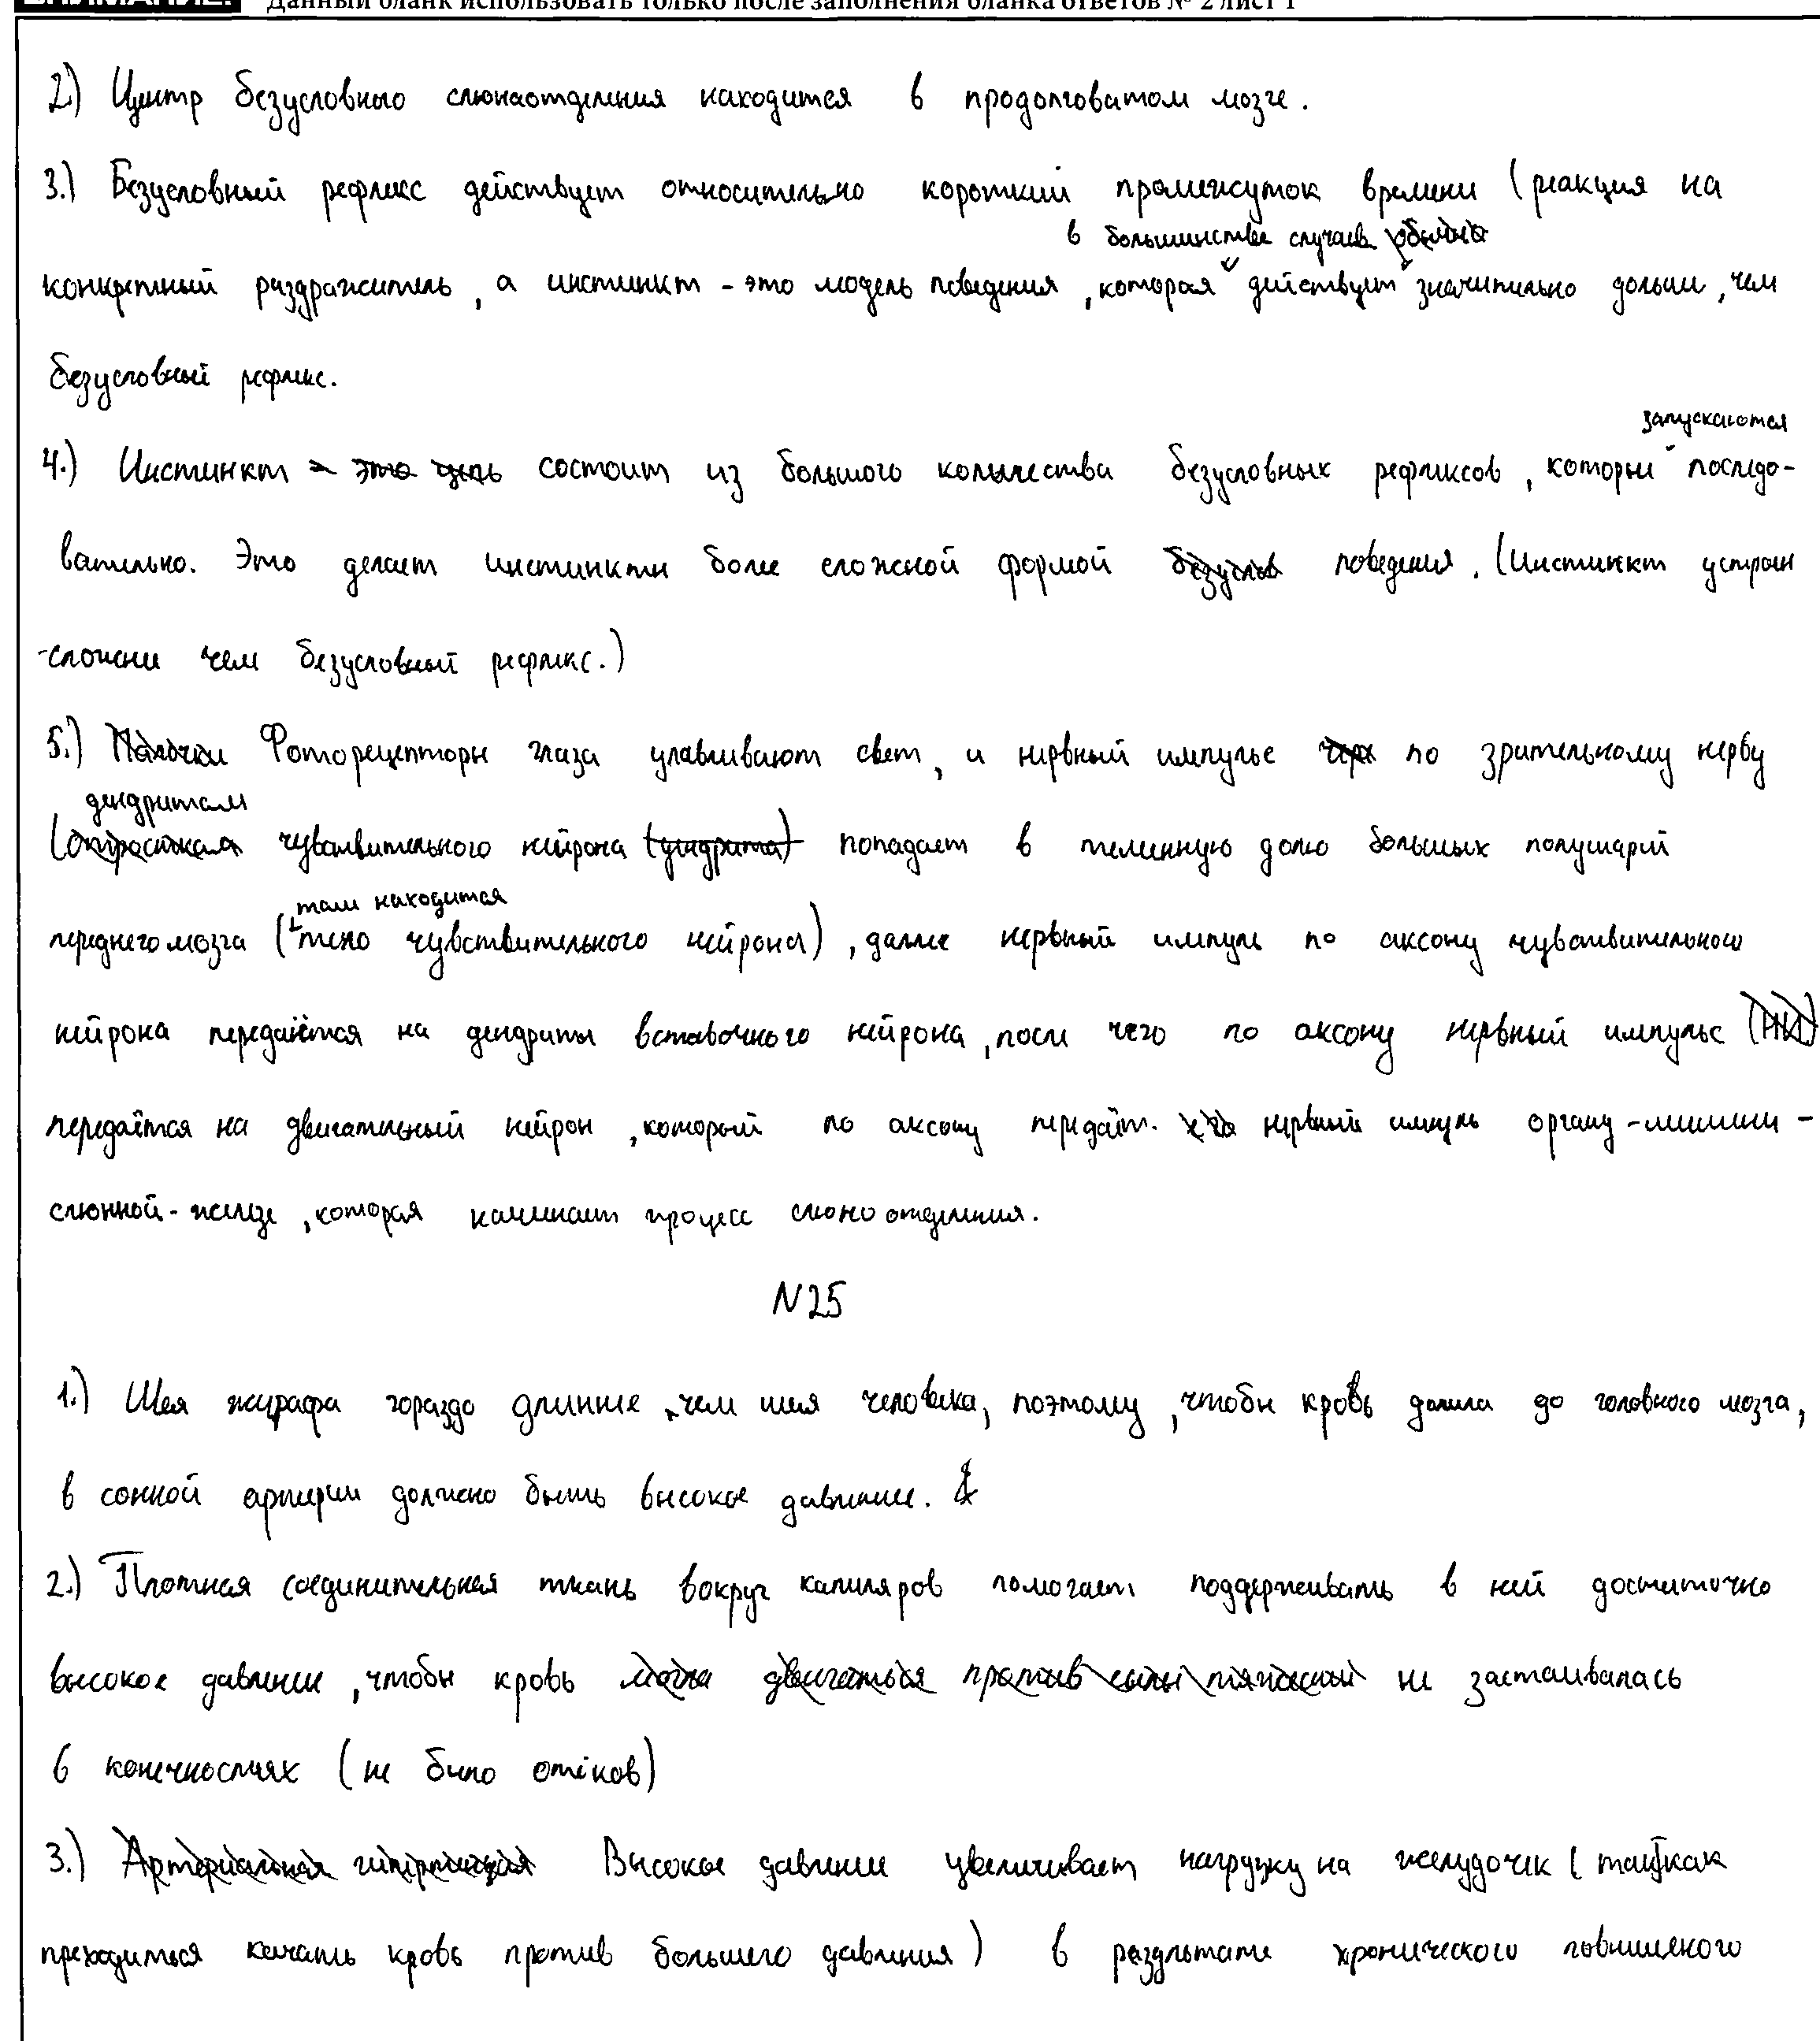 ВНИМАНИЕ! Данный бланк использовать только после заполнения бланка ответов № 2 лист 1
2.) Центр безусловного слюноотделения находится в продолговатом мозге.
3.) Безусловный рефлекс действует относительно короткий промежуток времени (реакция на
в большинстве случаев обычно
конкретный раздражитель, а инстинкт - это модель поведения, которая действует значительно дольше, чем
безусловный рефлекс.
запускаются
4.) Инстинкт - это цепь состоит из большого количества безусловных рефлексов, которые последо-
вательно. Это делает инстинкты более сложной формой безуслов поведения. (Инстинкт устроен
-сложнее чем безусловный рефлекс.)
5.) Палочки Фоторецепторы глаза улавливают свет, и нервный импульс чрез по зрительному нерву
дендритам
(отросткам чувствительного нейрона (дендрита) попадает в теменную долю больших полушарий
там находится
переднего мозга (тело чувствительного нейрона), далее нервный импуль по аксону чувствительного
нейрона передаётся на дендриты вставочного нейрона, после чего по аксону нервный импульс (НИ)
передаётся на двигательный нейрон, который по аксону передаёт. его нервный импуль органу-мишени -
слюнной-железе, которая начинает процесс слюноотделения.
N25
1.) Шея жирафа гораздо длиннее, чем шея человека, поэтому, чтобы кровь дошла до головного мозга,
в сонной артерии должно быть высокое давление.
2.) Плотная соединительная ткань вокруг капиляров помогает поддерживать в ней достаточно
высокое давление, чтобы кровь могла двигаться против силы тяжести не застаивалась
в конечностях (не было отёков)
3.) Артериальная гипертензия Высокое давление увеличивает нагрузку на желудочек (так как
преходиться качать кровь против большего давления) в раздльтате хронического повышеного